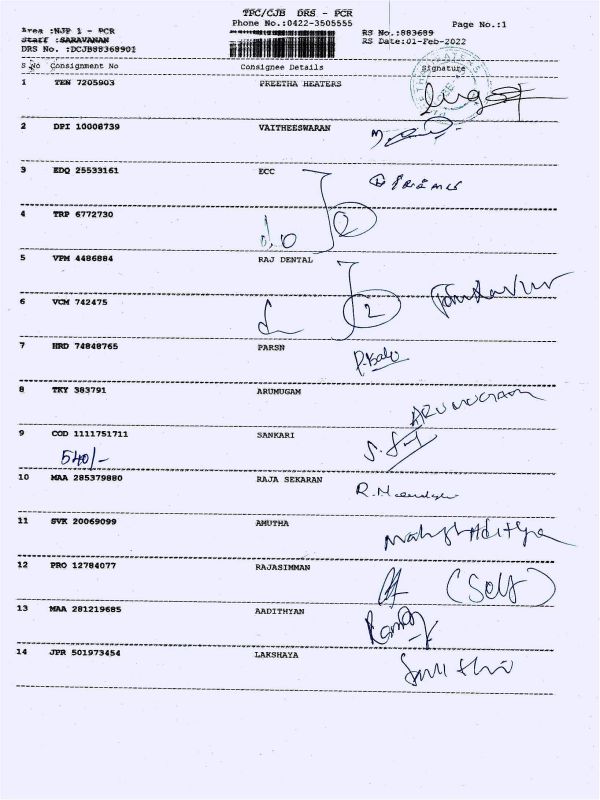 TPC/CJB DRS - PCR
Phone No.:0422-3505555
Page No.:1
Area :NJP 1 - PCR
RS No.:883689
Staff :SARAVANAN
RS Date:01-Feb-2022
DRS No. :DCJB88368901
S No Consignment No Consignee Details Signature
1 TEN 7205903 PREETHA HEATERS
2 DPI 10008739 VAITHEESWARAN
3 EDQ 25533161 ECC
4 TRP 6772730
2
5 VPM 4486884 RAJ DENTAL
6 VCM 742475
2
7 HRD 74848765 PARSN
P.Babu
8 TKY 383791 ARUMUGAM
ARUMUGAM
9 COD 1111751711 SANKARI
540/-
10 MAA 285379880 RAJA SEKARAN
11 SVK 20069099 AMUTHA
12 PRO 12784077 RAJASIMMAN
(Self)
13 MAA 281219685 AADITHYAN
14 JPR 501973454 LAKSHAYA